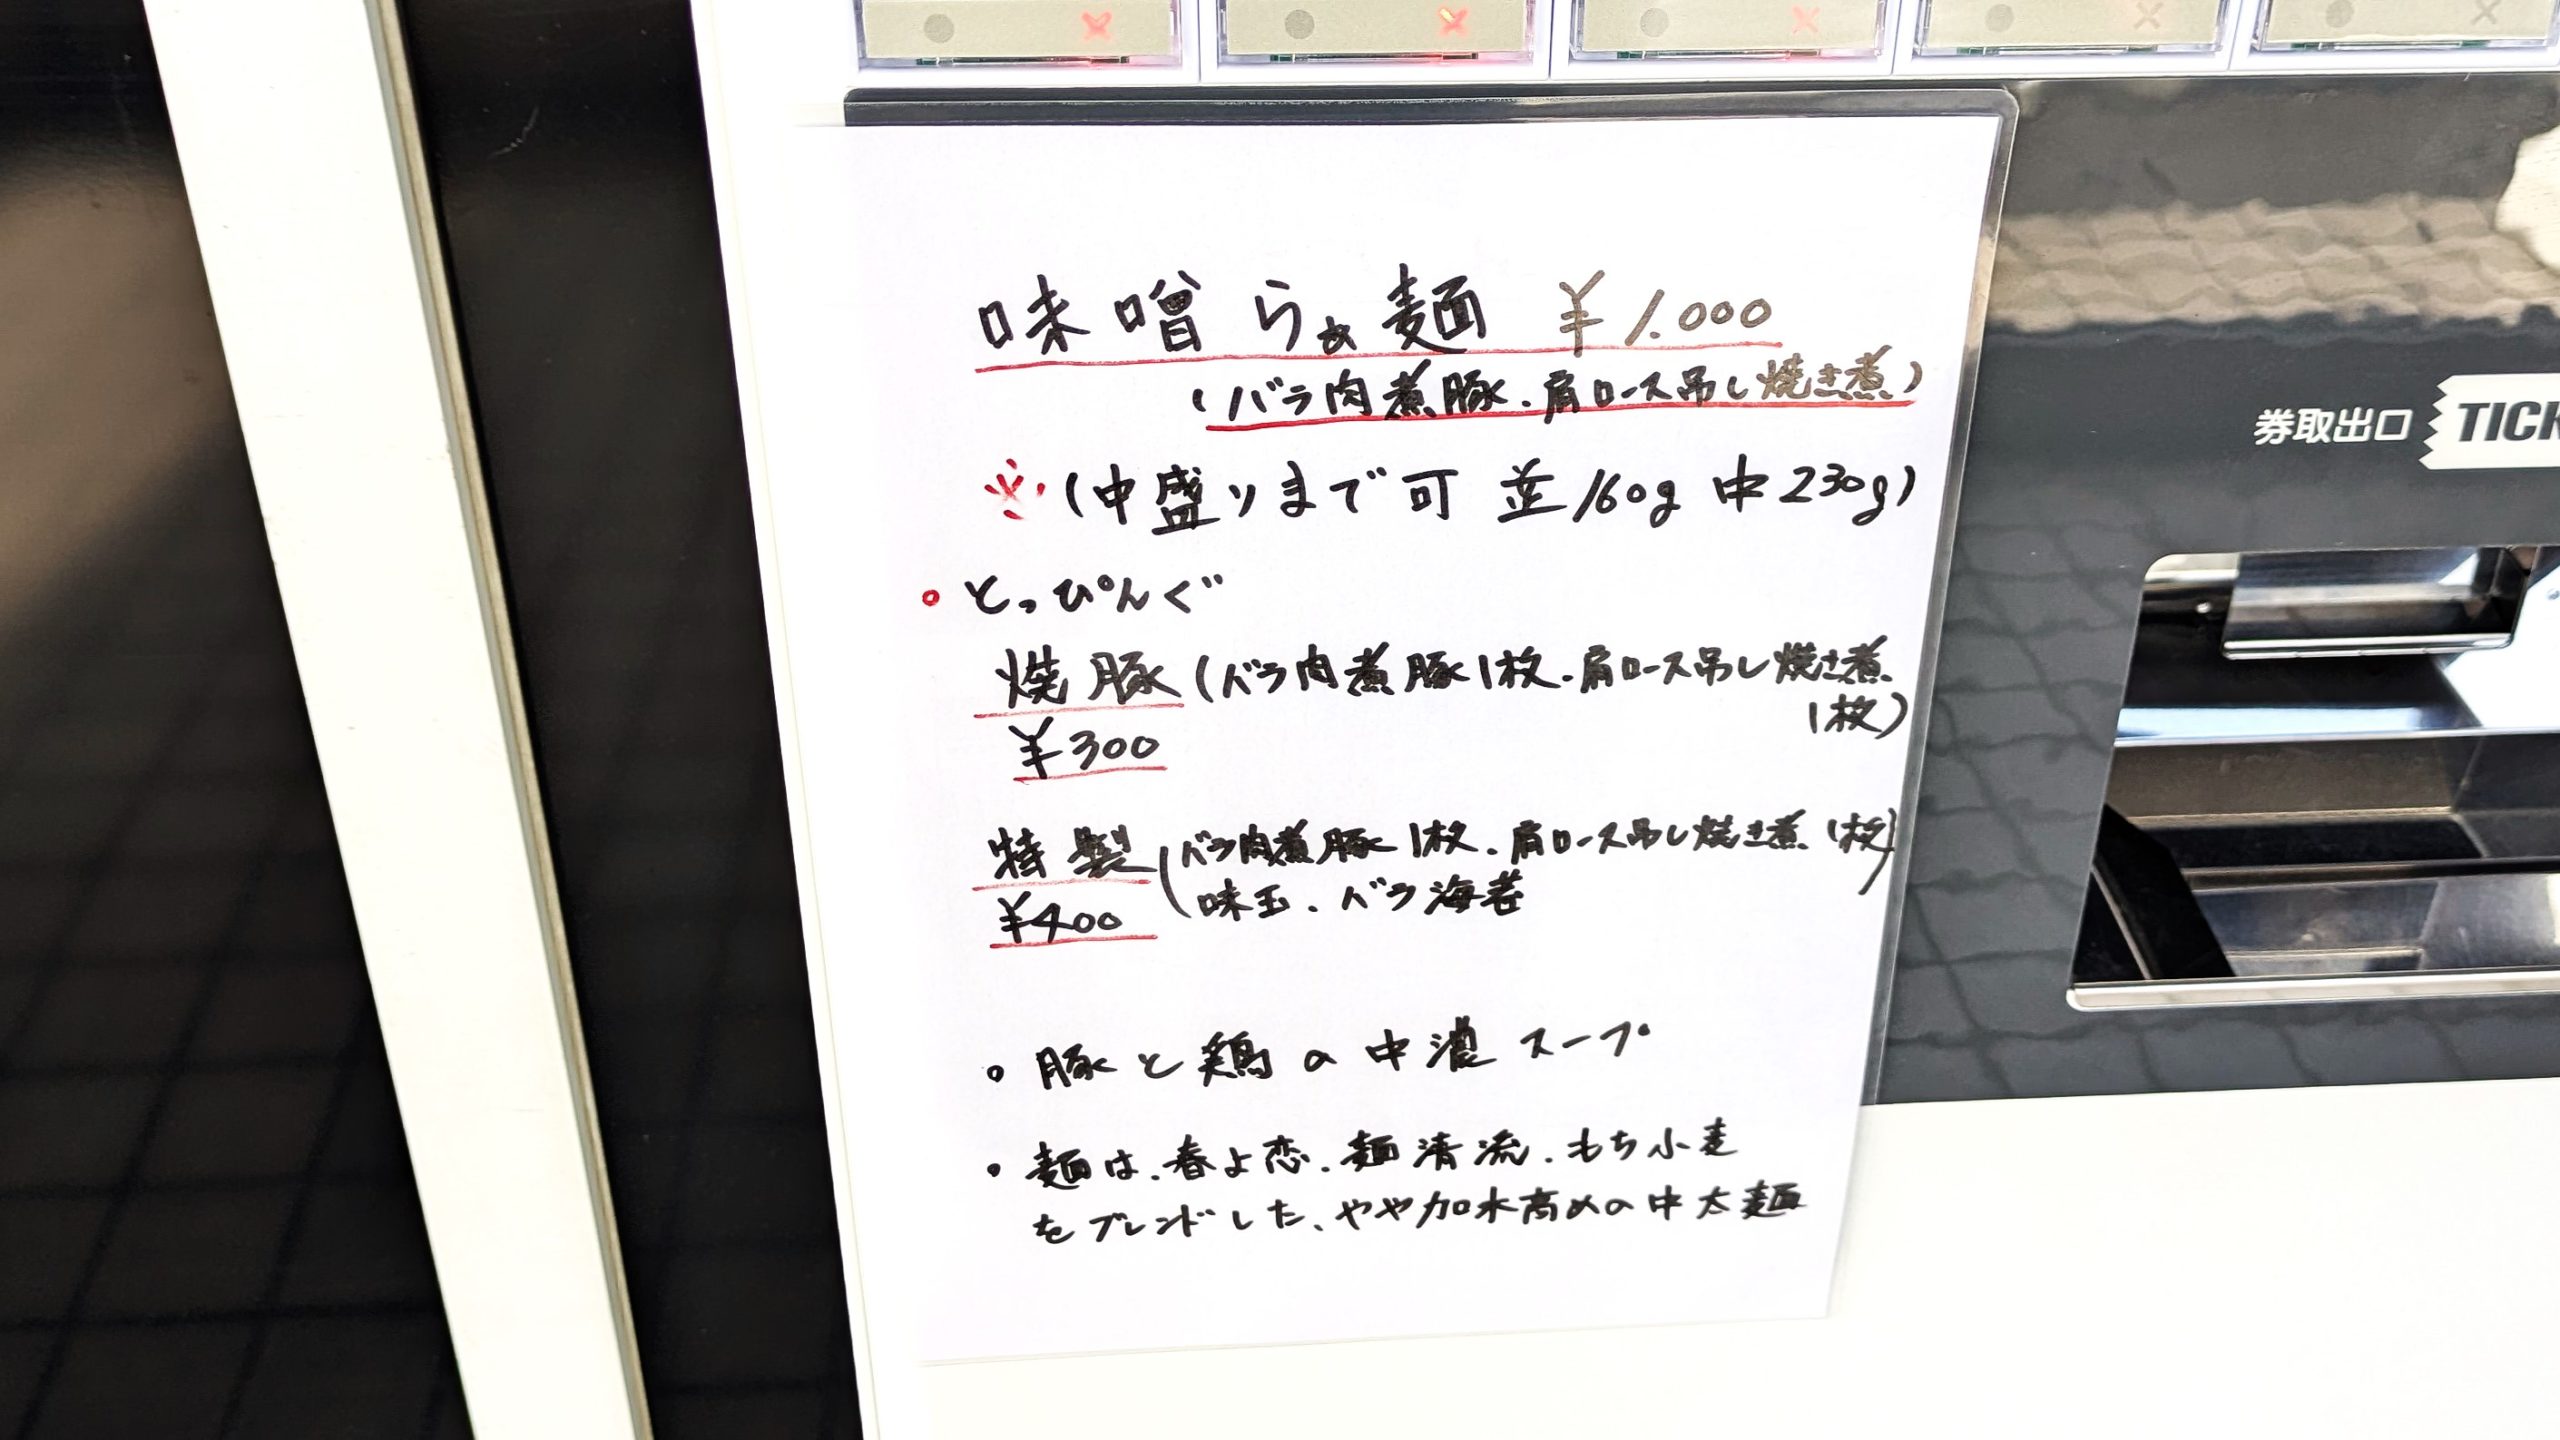 味噌らぁ麺 ¥1.000
(バラ肉煮豚.肩ロース吊し焼き煮)
※(中盛りまで可 並160g 中230g)
○とっぴんぐ
焼豚(バラ肉煮豚1枚.肩ロース吊し焼き煮
1枚)
¥300
特製(バラ肉煮豚1枚.肩ロース吊し焼き煮1枚
味玉.バラ海苔)
¥400
○豚と鶏の中濃スープ
・麺は.春よ恋.麺清流.もち小麦
をブレンドした、やや加水高めの中太麺
券取出口